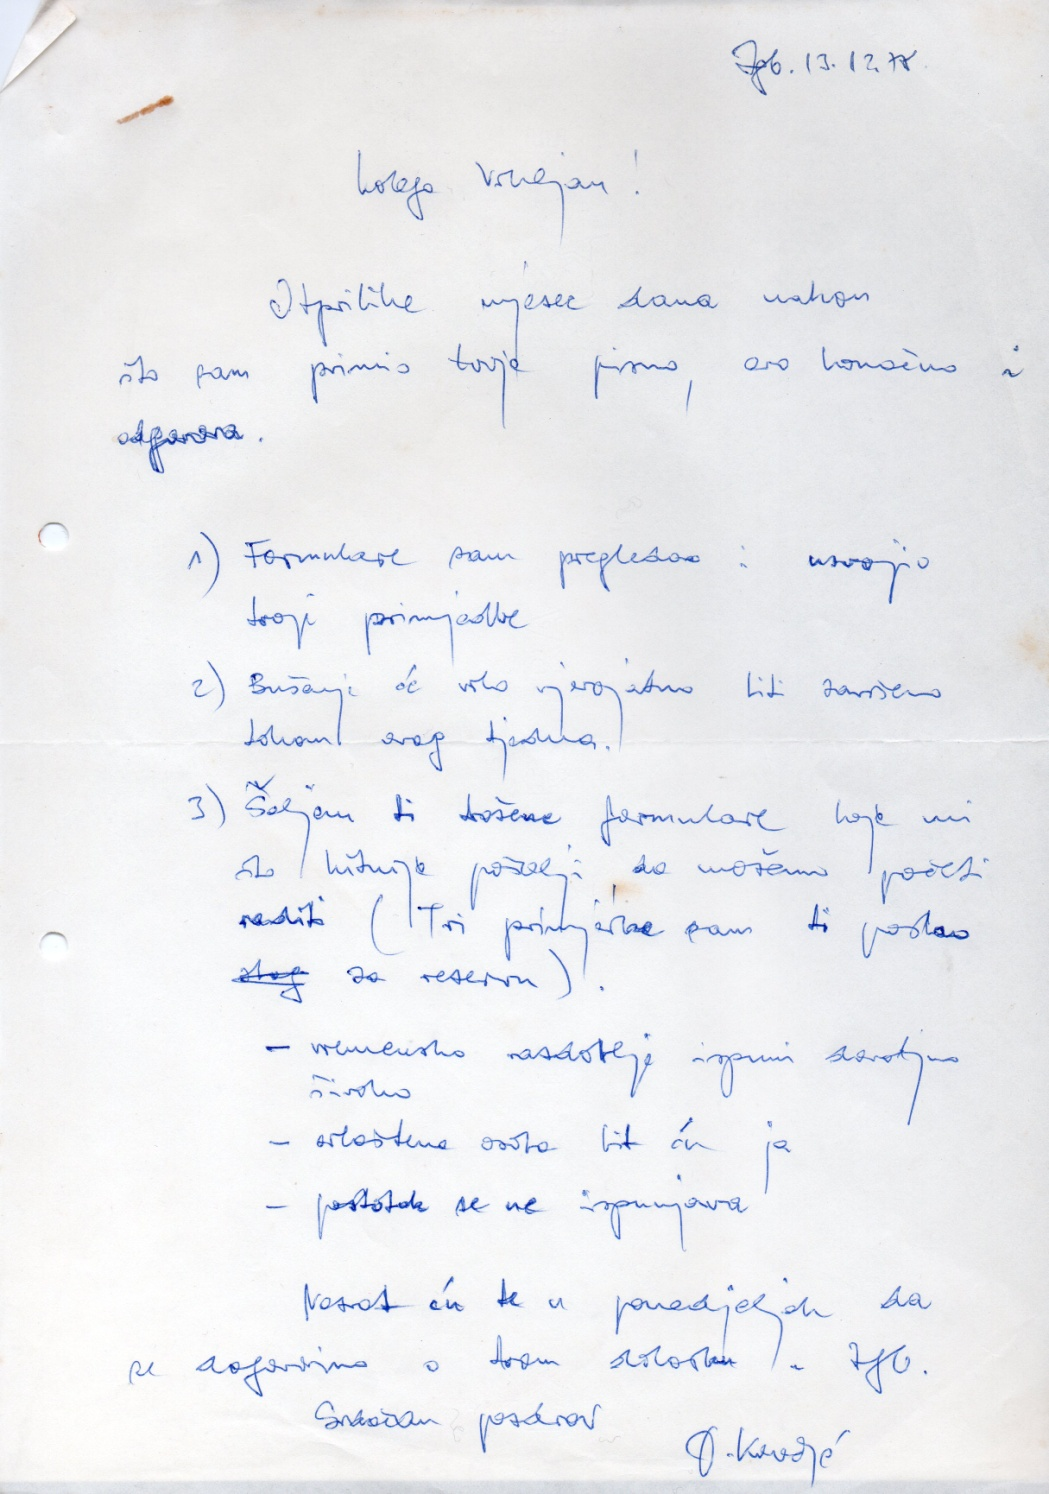 Zgb. 13.12.78.
kolega Vrkljan!
Otprilike mjesec dana nakon
što sam primio tvoje pismo, evo konačno i
odgovora.
1) Formulare sam pregledao i usvojio
tvoje primjedbe
2) Bušenje će vrlo vjerojatno biti završeno
tokom ovog tjedna.
3) Šaljem ti tražene formulare koje mi
što hitnije pošalji da možemo početi
raditi (Tri primjerka sam ti poslao
za rezervu).
- vremensko razdoblje ispuni dovoljno
široko
- ovlaštena osoba bit ću ja
- postotak se ne ispunjava
Nazvat ću te u ponedjeljak da
se dogovorimo o tvom dolasku u Zgb.
Srdačan pozdrav